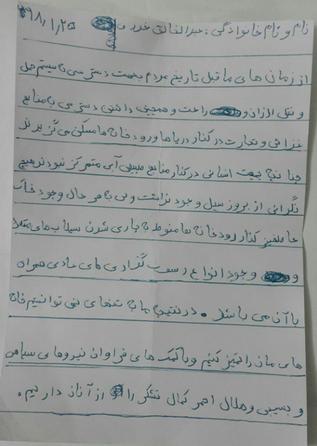 نام و نام خانوادگی: عبدالخالق ۹۸،۱،۲۵
از زمان های ماقبل تاریخ مردم بجهت دسترسی به سیستم حمل
و نقل ارزان و راحت و همچنین داشتن دسترسی به منابع
غذایی و تجارت در کنار دریاها و رودخانه ها مسکن می گزیدند
چنانچه جمعیت انسانی در کنار منابع طبیعی آبی متمرکز نبود هیچ
نگرانی از بروز سیل وجود نداشت ولی بهر حال وجود خاک
حاصلخیز کنار رودخانه ها منوط به جاری شدن سیلاب های
و وجود انواع رسوب گذاری های مادی همراه
با آن می باشد. در نتیجه ما به تنهای نمی توانیم خانه
های مان را تمیز کنیم و با کمک های فراوان نیروهای سپاهی
و بسیجی و هلال احمر کمال تشکر را از آنان داریم.